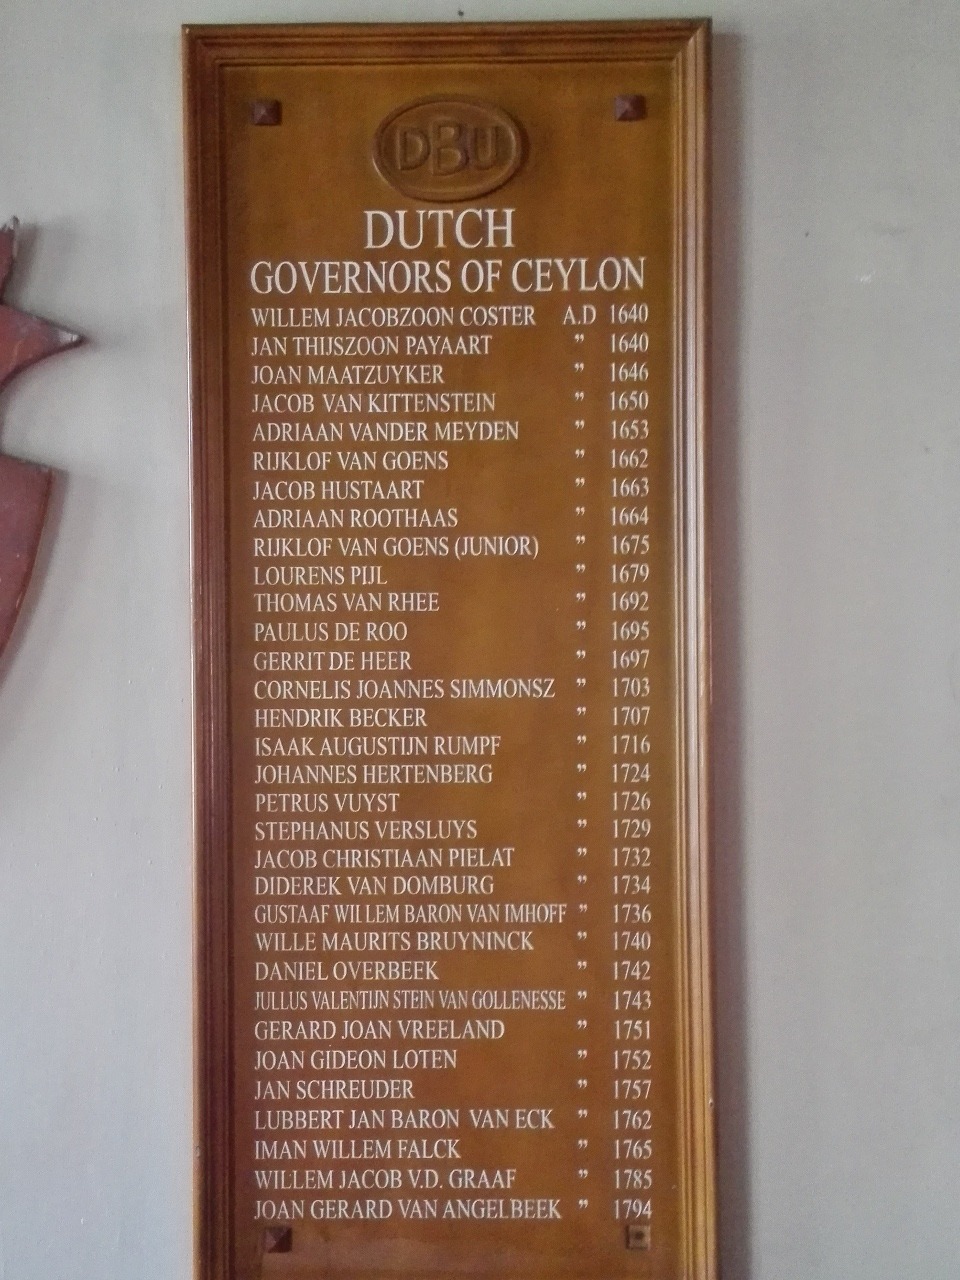 DBU
DUTCH
GOVERNORS OF CEYLON
WILLEM JACOBZOON COSTER A.D 1640
JAN THIJSZOON PAYAART " 1640
JOAN MAATZUYKER " 1646
JACOB VAN KITTENSTEIN " 1650
ADRIAAN VANDER MEYDEN " 1653
RIJKLOF VAN GOENS " 1662
JACOB HUSTAART " 1663
ADRIAAN ROOTHAAS " 1664
RIJKLOF VAN GOENS (JUNIOR) " 1675
LOURENS PIJL " 1679
THOMAS VAN RHEE " 1692
PAULUS DE ROO " 1695
GERRIT DE HEER " 1697
CORNELIS JOANNES SIMMONSZ " 1703
HENDRIK BECKER " 1707
ISAAK AUGUSTIJN RUMPF " 1716
JOHANNES HERTENBERG " 1724
PETRUS VUYST " 1726
STEPHANUS VERSLUYS " 1729
JACOB CHRISTIAAN PIELAT " 1732
DIDEREK VAN DOMBURG " 1734
GUSTAAF WILLEM BARON VAN IMHOFF " 1736
WILLE MAURITS BRUYNINCK " 1740
DANIEL OVERBEEK " 1742
JULLUS VALENTIJN STEIN VAN GOLLENESSE " 1743
GERARD JOAN VREELAND " 1751
JOAN GIDEON LOTEN " 1752
JAN SCHREUDER " 1757
LUBBERT JAN BARON VAN ECK " 1762
IMAN WILLEM FALCK " 1765
WILLEM JACOB V.D. GRAAF " 1785
JOAN GERARD VAN ANGELBEEK " 1794